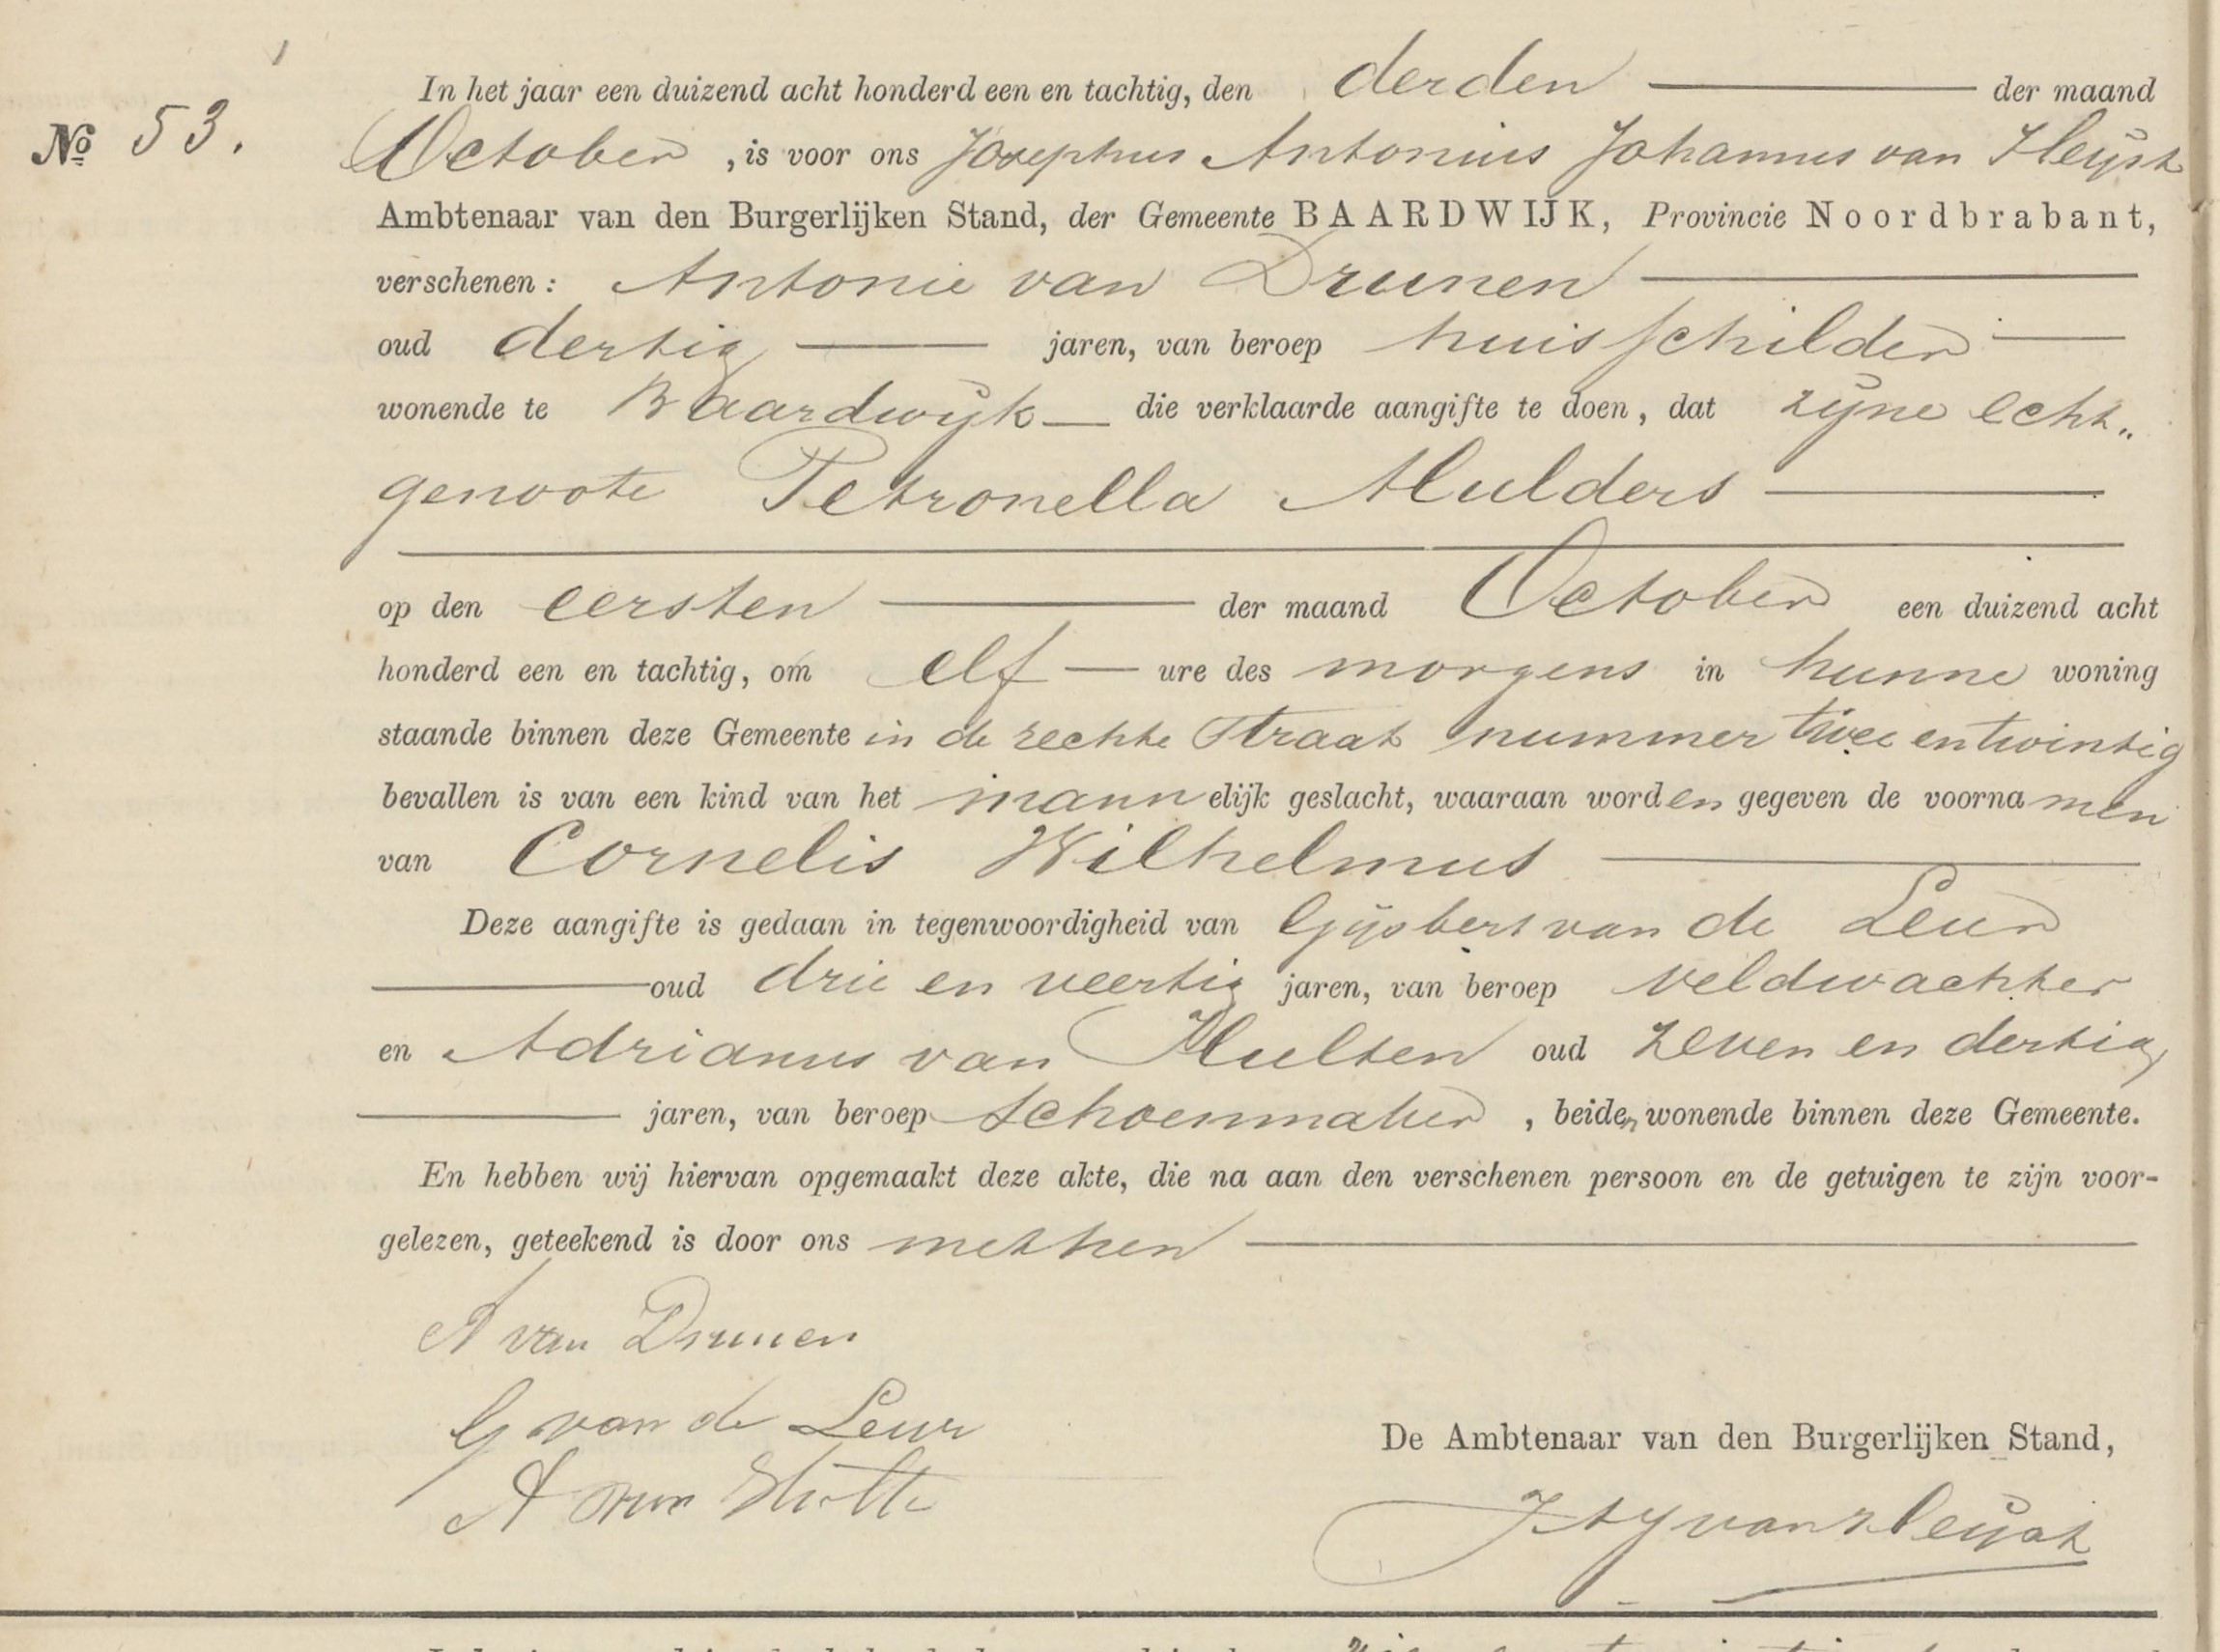 In het jaar een duizend acht honderd een en tachtig, den derden der maand
No 53.
October, is voor ons Josephus Antonius Johannus van Heijst
Ambtenaar van den Burgerlijken Stand, der Gemeente BAARDWIJK, Provincie Noordbrabant,
verschenen: Antonie van Drunen
oud dertig jaren, van beroep huisschilder
wonende te Baardwijk die verklaarde aangifte te doen, dat zijne echt„
genoote Petronella Mulders
op den eersten der maand October een duizend acht
honderd een en tachtig, om elf ure des morgens in hunne woning
staande binnen deze Gemeente in de rechte Straat nummer twee en twintig
bevallen is van een kind van het mannelijk geslacht, waaraan worden gegeven de voornamen
van Cornelis Wilhelmus
Deze aangifte is gedaan in tegenwoordigheid van Gijsbert van de Leur
oud drie en veertig jaren, van beroep veldwachter
en Adrianus van Hulten oud zeven en dertig
jaren, van beroep schoenmaker, beiden wonende binnen deze Gemeente.
En hebben wij hiervan opgemaakt deze akte, die na aan den verschenen persoon en de getuigen te zijn voor-
gelezen, geteekend is door ons met hen
A van Drunen
G van de Leur
A van
De Ambtenaar van den Burgerlijken Stand,
JAJ van Heijst